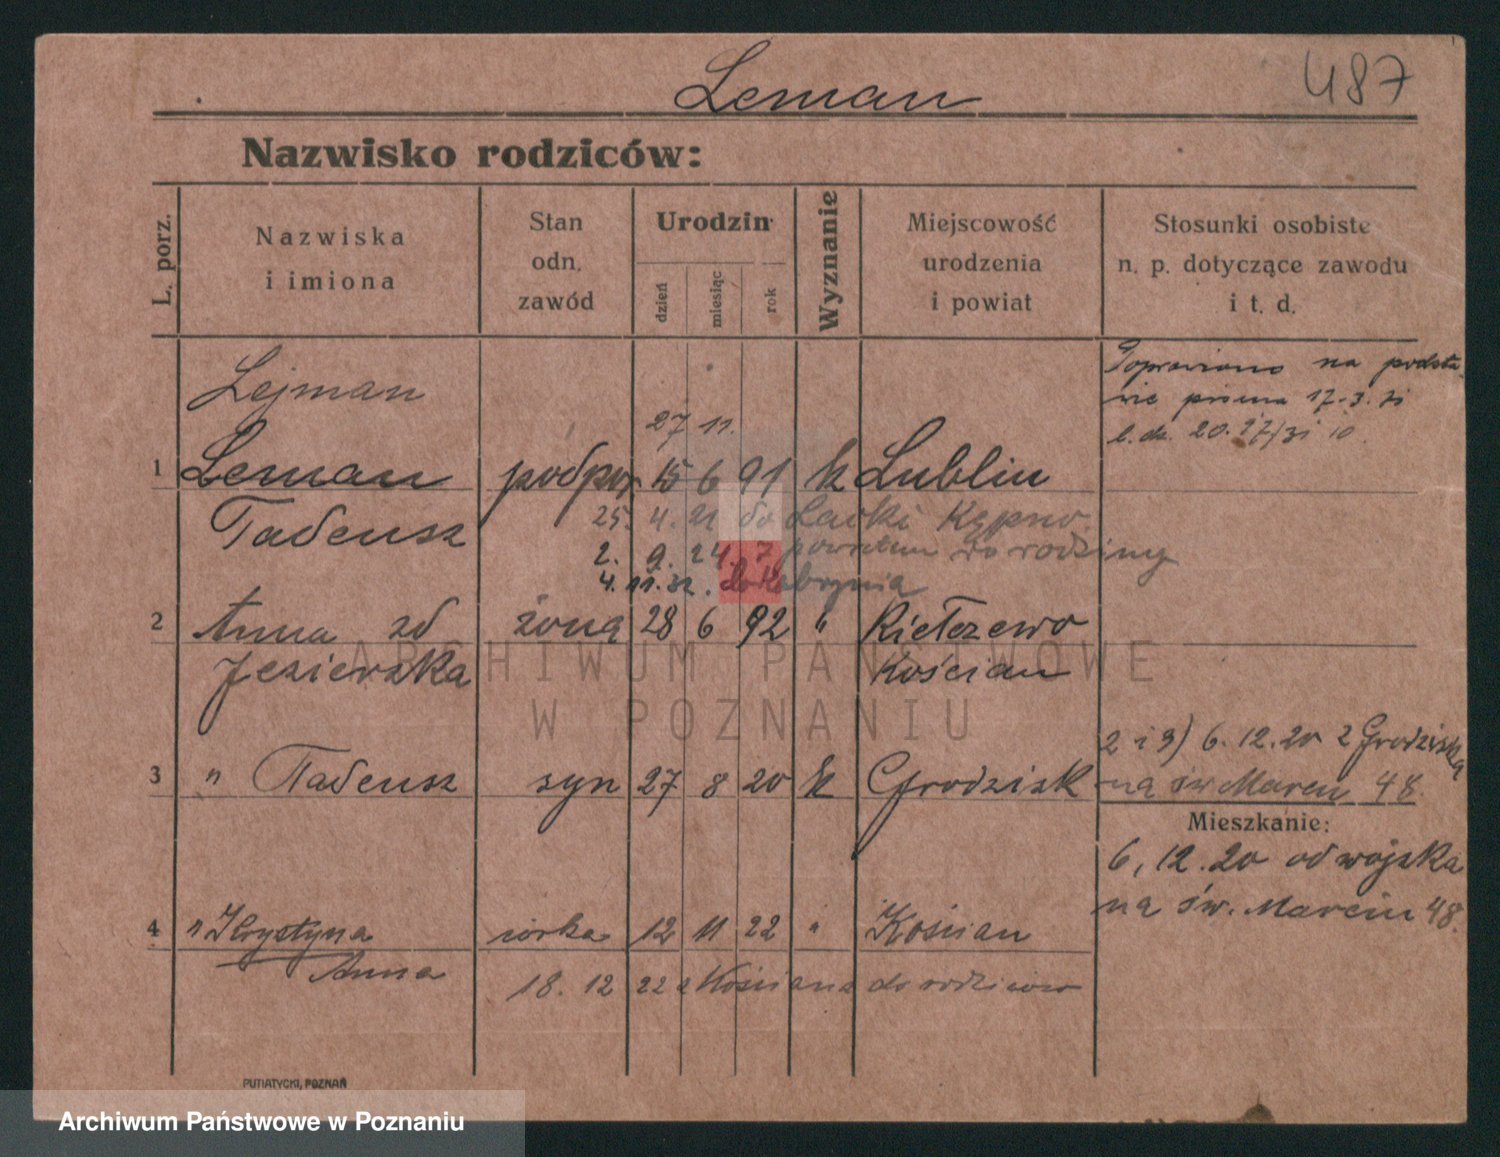 Leman
487
Nazwisko rodziców:
L. porz.
Nazwiska
i imiona
Stan
odn.
zawód
Urodzin
dzień
miesiąc
rok
Wyznanie
Miejscowość
urodzenia
i powiat
Stosunki osobiste
n. p. dotyczące zawodu
i t. d.
Poprawiono na podsta
wie pisma 17.3.31
l. dz. 20.27/31
Lejman
27 11.
1 Leman podpor 15 6 91 k Lublin
Tadeusz
25. 4. 21 do Kępno
2. 9. 24. z powrotem do rodziny
4. 11. 32. do Kobrynia
2 Anna zd żona 28 6 92 " Kiełczewo
Jezierska Kościan
ARCHIWUM PAŃSTWOWE
W POZNANIU
2 i 3) 6.12.20 z Grodziska
na św Marcin 48.
3 " Tadeusz syn 27 8 20 k Grodzisk
Mieszkanie:
6.12.20 od wojska
na św. Marcin 48.
4 " Krystyna córka 12 11 22 " Kościan
Anna
18. 12 22 z Kościana do rodziców
PUTIATYCKI, POZNAŃ
Archiwum Państwowe w Poznaniu